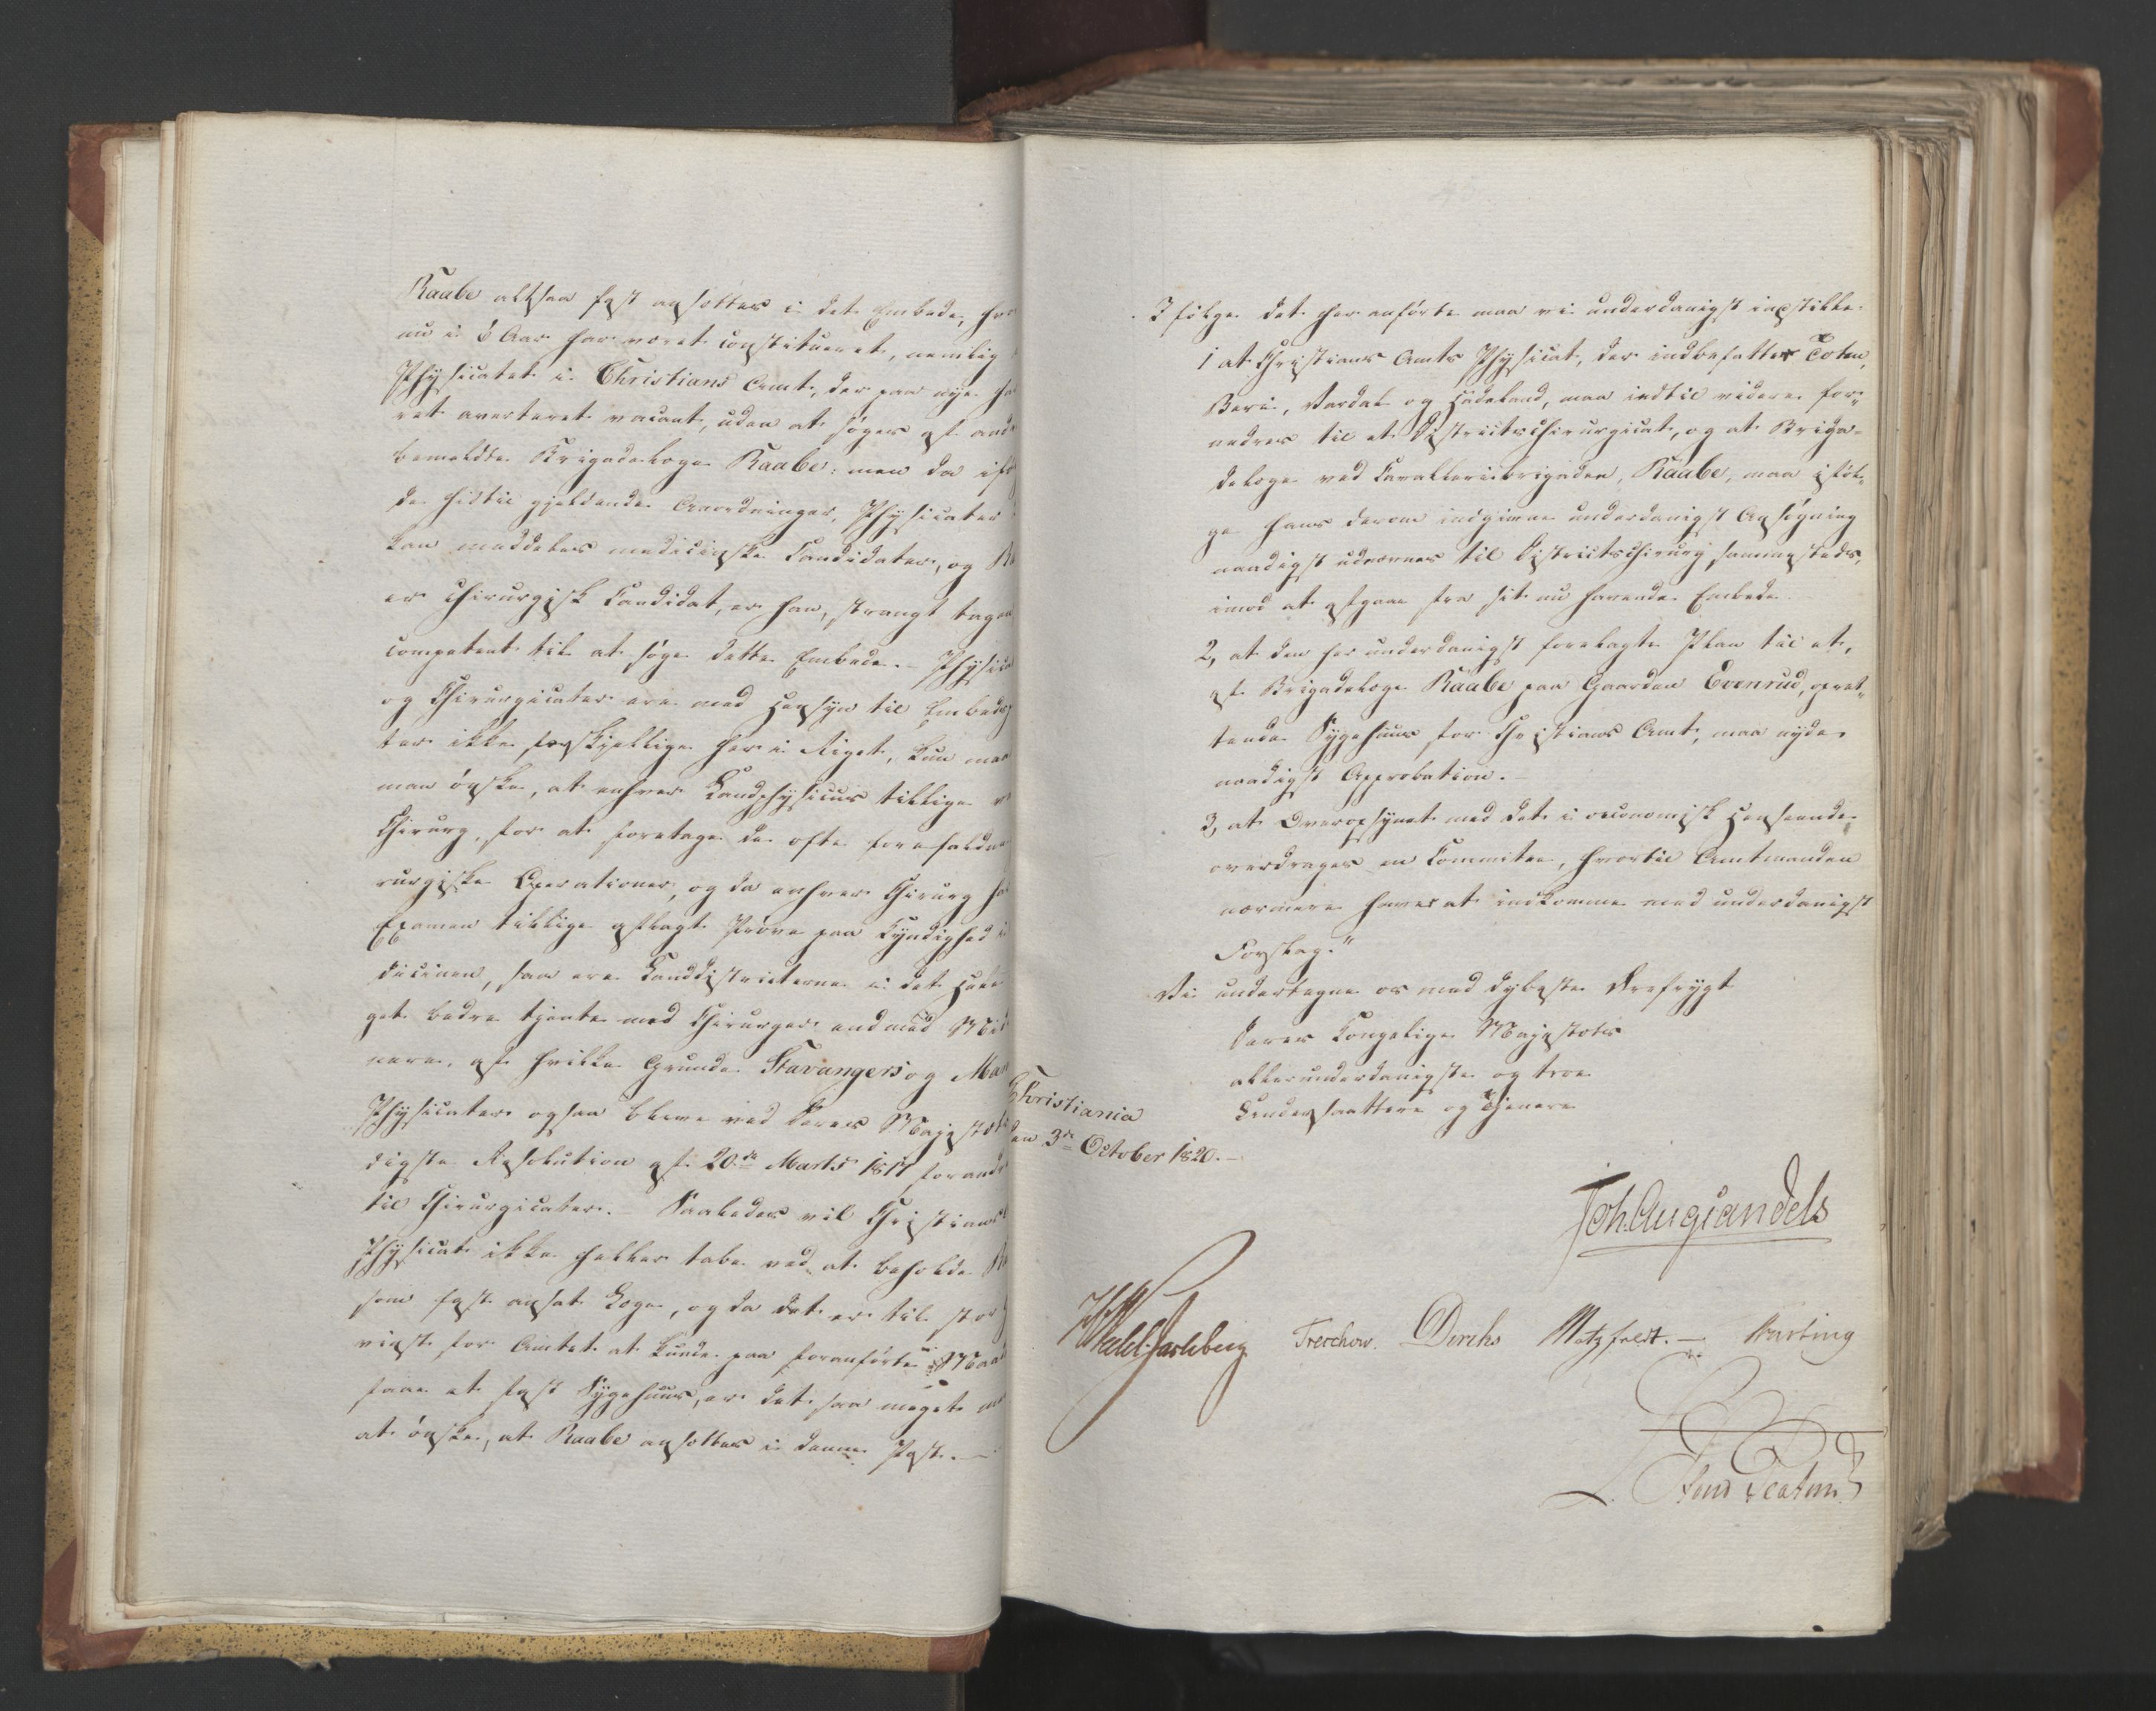 Raabe altsaa fast ansættes i det Embede, hvo
nu i 6 Aar har været constitueret, nemlig
Physicatet i Christians Amt, der paa nye ha
ret averteret vacant, uden at søges af and
bemeldte Brigadelæge Raabe; men da ifø
de hidtil gjeldende Anordninger, Physicater
kan meddeles medicinske Candidater, og Ra
er chirurgisk Candidat, er han, strængt tagen
competent til at søge dette Embede. – Physica
og Chirurgicater ere med Hensyn til Embeds
ter ikke forskjellige her i Riget, kun maa
man ønske, at enhver Landphysicus tillige v
Chirurg, for at foretage de ofte forefaldne
rurgiske Operationer, og da enhver Chirurg ha
Examen tillige aflagt Prøve paa Kyndighed i
dicinen, saa ere Landdistricterne i det Hele
get bedre tjente med Chirurger end med Medi
nere, af hvilke Grunde Stavangers og Man
Physicater ogsaa bleve ved Deres Majestæts
digste Resolution af 20de Marts 1817 forandr
til Chirurgicater. – Saaledes vil Christians
Physicat ikke heller tabe ved at beholde Ra
som fast ansat Læge, og da det er til stor G
vinst for Amtet at kunde paa foranførte Maad
faae et fast Sygehuus, er det saa meget me
at ønske, at Raabe ansættes i denne Post. –
Ifølge det her anførte maa vi underdanigst indstille
1 at Christians Amts Physicat, der indbefatter Toten,
Berie, Vardal og Hadeland, maa indtil videre for„
andres til et Districtschirurgicat, og at Briga-
delæge ved Cavalleribrigaden, Raabe, maa iføl„
ge hans derom indgivne underdanigst Ansøgning
naadigst udnævnes til Districtschirurg sammesteds,
imod at afgaae fra sit nu havende Embede.
2, at den her underdanigst forelagte Plan til et,
af Brigadelæge Raabe paa Gaarden Evenrud, opret„
tende Sygehuus for Christians Amt, maa nyde
naadigst Approbation. –
3, at Overopsynet med det i oeconomisk Henseende
overdrages en Committee, hvortil Amtmanden
nærmere haver at indkomme med underdanigst
Forslag."
Vi undertegne os med dybeste Ærefrygt
Deres Kongelige Majestæts
allerunderdanigste og troe
Undersaattere og Tjenere
Christiania
den 3de October 1820. –
Joh. Aug Sandels
HWedel-Jarlsberg Treschow. Diriks Motzfeldt. – Krefting